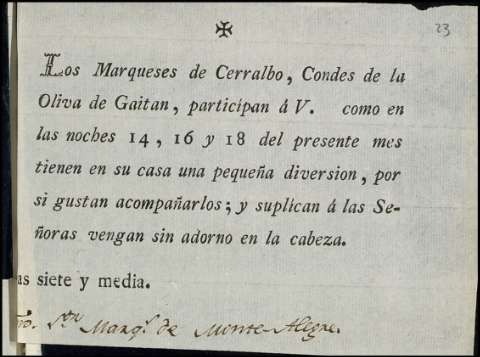 ✠
23
Los Marqueses de Cerralbo, Condes de la
Oliva de Gaitan, participan á V. como en
las noches 14, 16 y 18 del presente mes
tienen en su casa una pequeña diversion, por
si gustan acompañarlos; y suplican á las Se-
ñoras vengan sin adorno en la cabeza.
as siete y media.
Sor. Marqs. de Monte Alegre.